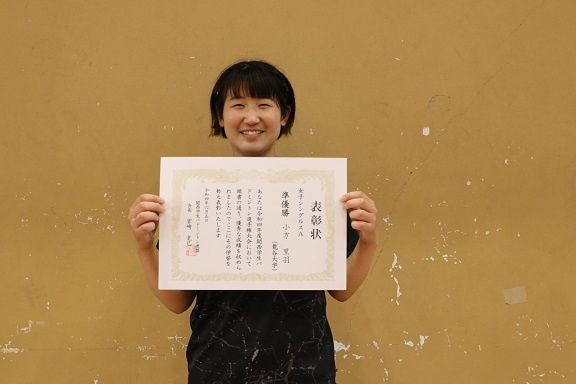 表彰状
女子シングルスA
準優勝 小方 里羽
(龍谷大学)
あなたは令和四年度関西学生バ
ドミントン選手権大会において
頭書の通り、優秀な成績を収めら
れましたのでここにその栄誉を
称え表彰いたします
関西学生バドミントン連盟
会長 宮崎